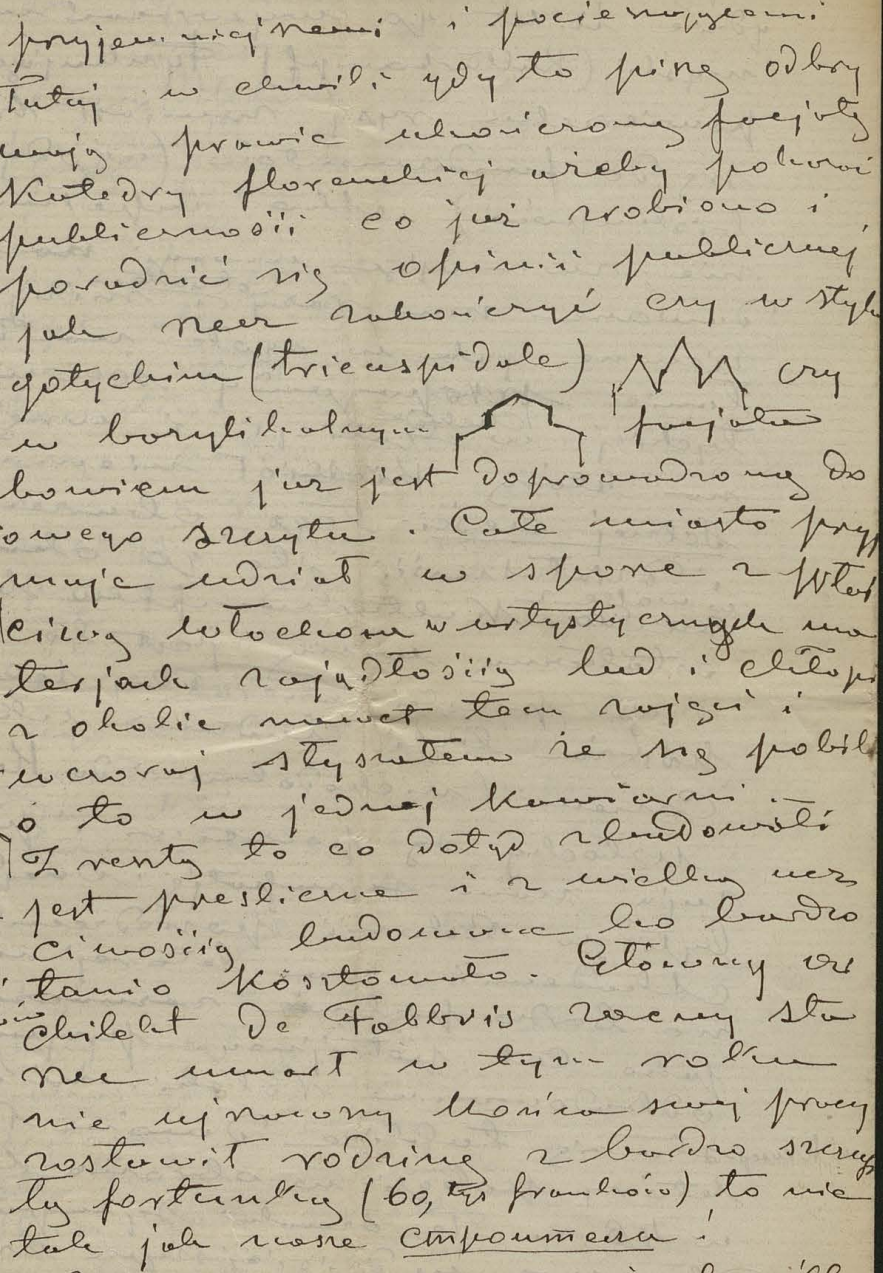 przyjemniejszemi i pocieszającemi
Tutaj w chwili gdy to piszę odkry
wają prawie ukończoną facjatę
Katedry florenckiej ażeby pokazać
publiczności co już zrobiono i
poradzić się opinii publicznej
jak rzecz zakończyć czy w stylu
gotyckim (tricuspidale) czy
w bazylikalnym facjata
bowiem już jest doprowadzoną do
owego szczytu. Całe miasto przyj
muje udział w sporze z właś
ciwą włochom w artystycznych ma
terjach zajadłością lud i chłopi
z okolic nawet tem zajęci i
wczoraj słyszałem że się pobili
o to w jednej kawiarni.
Z resztą to co dotąd zbudowali
jest prześliczne i z wielką ucz
ciwością budowane bo bardzo
tanio kosztowało. Główny ar
chitekt De Fabbris zacny sta
rzec umarł w tym roku
nie ujrzawszy końca swej pracy
zostawił rodzinę z bardzo szczup
łą fortunką (60, tys franków) to nie
tak jak nasze строители!